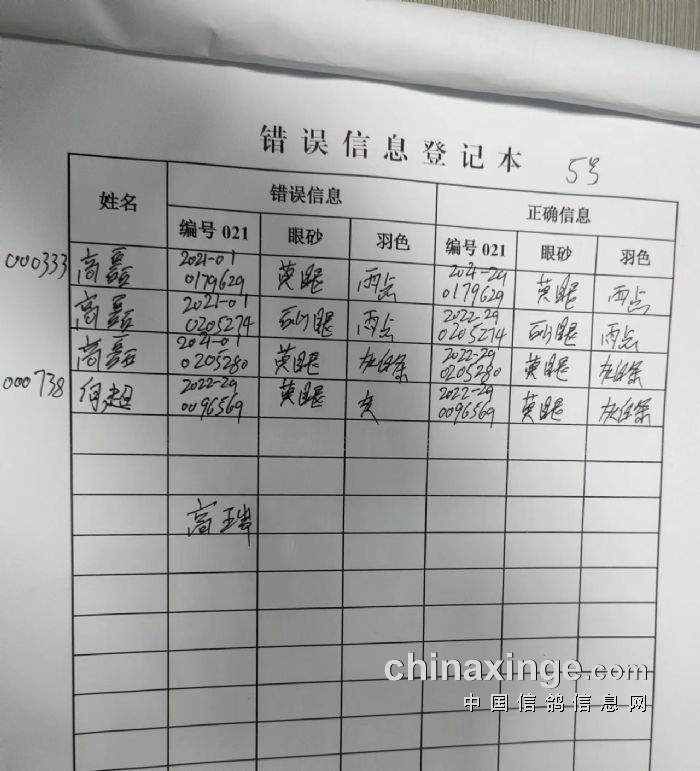 错误信息登记本 5号
姓名 错误信息 正确信息
编号 021 眼砂 羽色 编号 021 眼砂 羽色
000333 高磊 2021-01 0179629 黄眼 雨点 2021-29 0179629 黄眼 雨点
高磊 2021-01 0205274 砂眼 雨点 2022-29 0205274 砂眼 雨点
高磊 2021-01 0205280 黄眼 灰白条 2022-29 0205280 黄眼 灰白条
000738 何超 2022-29 0096569 黄眼 灰 2022-29 0096569 黄眼 灰白条
高瑞
chinaxinge.com
中国信鸽信息网